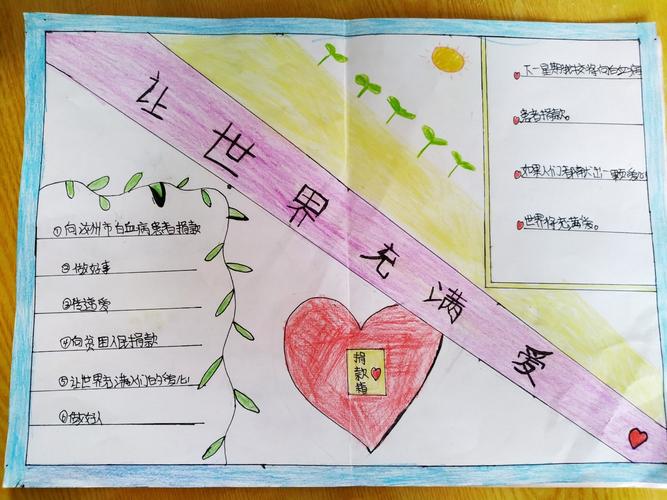 让世界充满爱
①向汝州市白血病患者捐款
②做好事
③传递爱
④向贫困人民捐款
⑤让世界充满人们的爱心!
⑥做好人
捐款箱
下一星期我校将向白血病
患者捐款。
如果人们都献出一颗爱心
世界将充满爱。